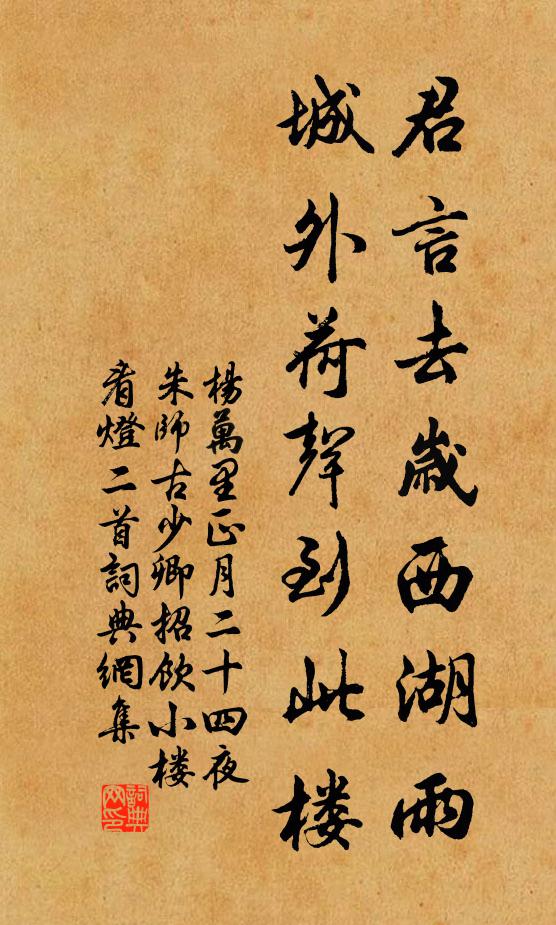 君言去歲西湖雨
城外荷聲到此楼
楊萬里正月二十四夜
朱師古少卿招飲小楼
看燈二首詞典網集
詞典网印